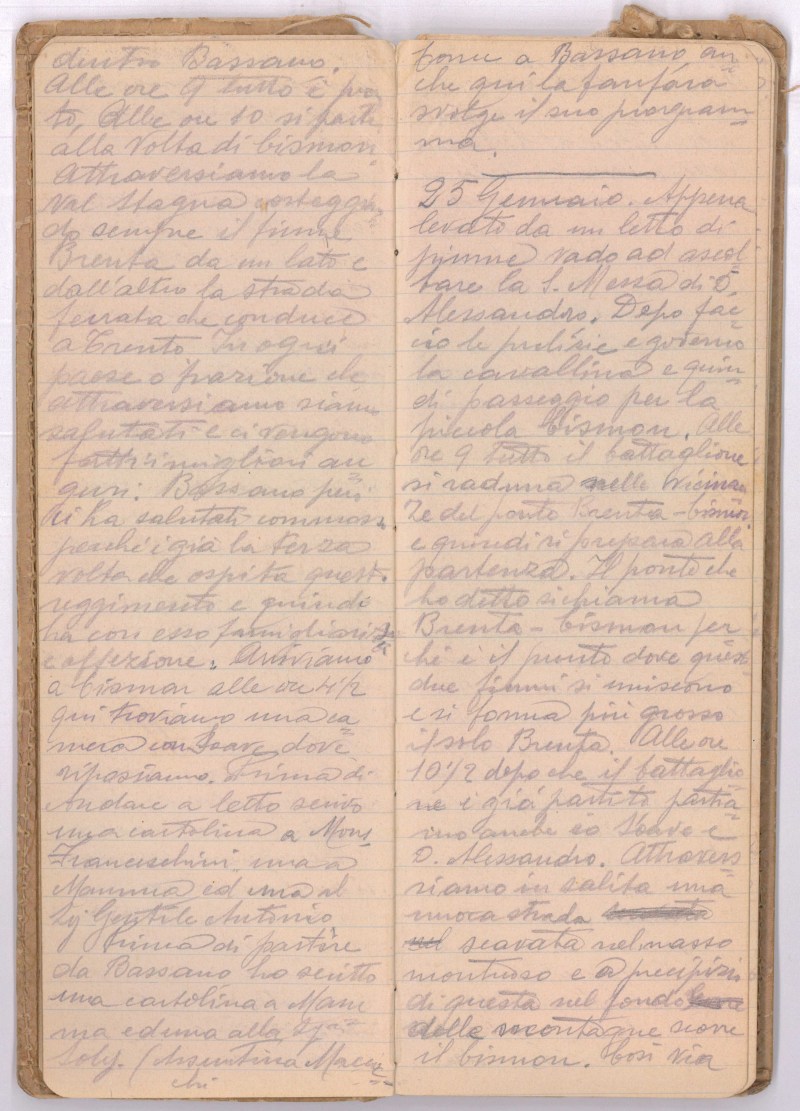 dentro Bassano.
Alle ore 9 tutto è pron
to, Alle ore 10 si parte
alla volta di Cismon
Attraversiamo la
Val Stagna costeggian
do sempre il fiume
Brenta da un lato e
dall'altro la strada
ferrata che conduce
a Trento In ogni
paese o frazione che
attraversiamo siamo
salutati e ci vengono
fatti i migliori au
guri. Bassano però
ci ha salutati commossa
perché è già la terza
volta che ospita questo
reggimento e quindi
ha con esso famigliarità
e affezione. Arriviamo
a Cismon alle ore 4 1/2
qui troviamo una ca
mera con Soave dove
riposiamo. Prima di
andare a letto scrivo
una cartolina a Mons
Franceschini una a
Mamma ed una al
Sig Gentile Antonio
Prima di partire
da Bassano ho scritto
una cartolina a Mam
ma ed una alla Sig.na
Soly. (Argentina
chi
come a Bassano, an
che qui la fanfara
svolge il suo program
ma.
25 Gennaio. Appena
levato da un letto di
piume vado ad ascol
tare la S. Messa di D.
Alessandro. Depo fac
cio le pulizie e governo
la cavallina e quin
di passeggio per la
piccola Cismon. Alle
ore 9 tutto il battaglione
si raduna nelle vicinan
ze del ponte Brenta-Cismon
e quindi si prepara alla
partenza. Il ponte che
ho detto si chiama
Brenta - Cismon per
ché è il punto dove questi
due fiumi si uniscono
e si forma più grosso
il solo Brenta. Alle ore
10 1/2 depo che il battaglio
ne è già partito partia
mo anche io Soave e
D. Alessandro. Attraver
siamo in salita una
nuova strada
nel scavata nel masso
montuoso e a precipizio
di questa nel fondo
delle montagne scorre
il Cismon. Così via